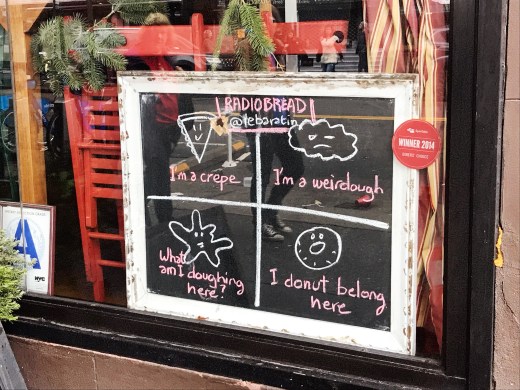 RADIOBREAD
@lebaratin
I'm a crepe
I'm a weirdough
What
am I doughing
here?
I donut belong
here
WINNER 2014
A
NYC